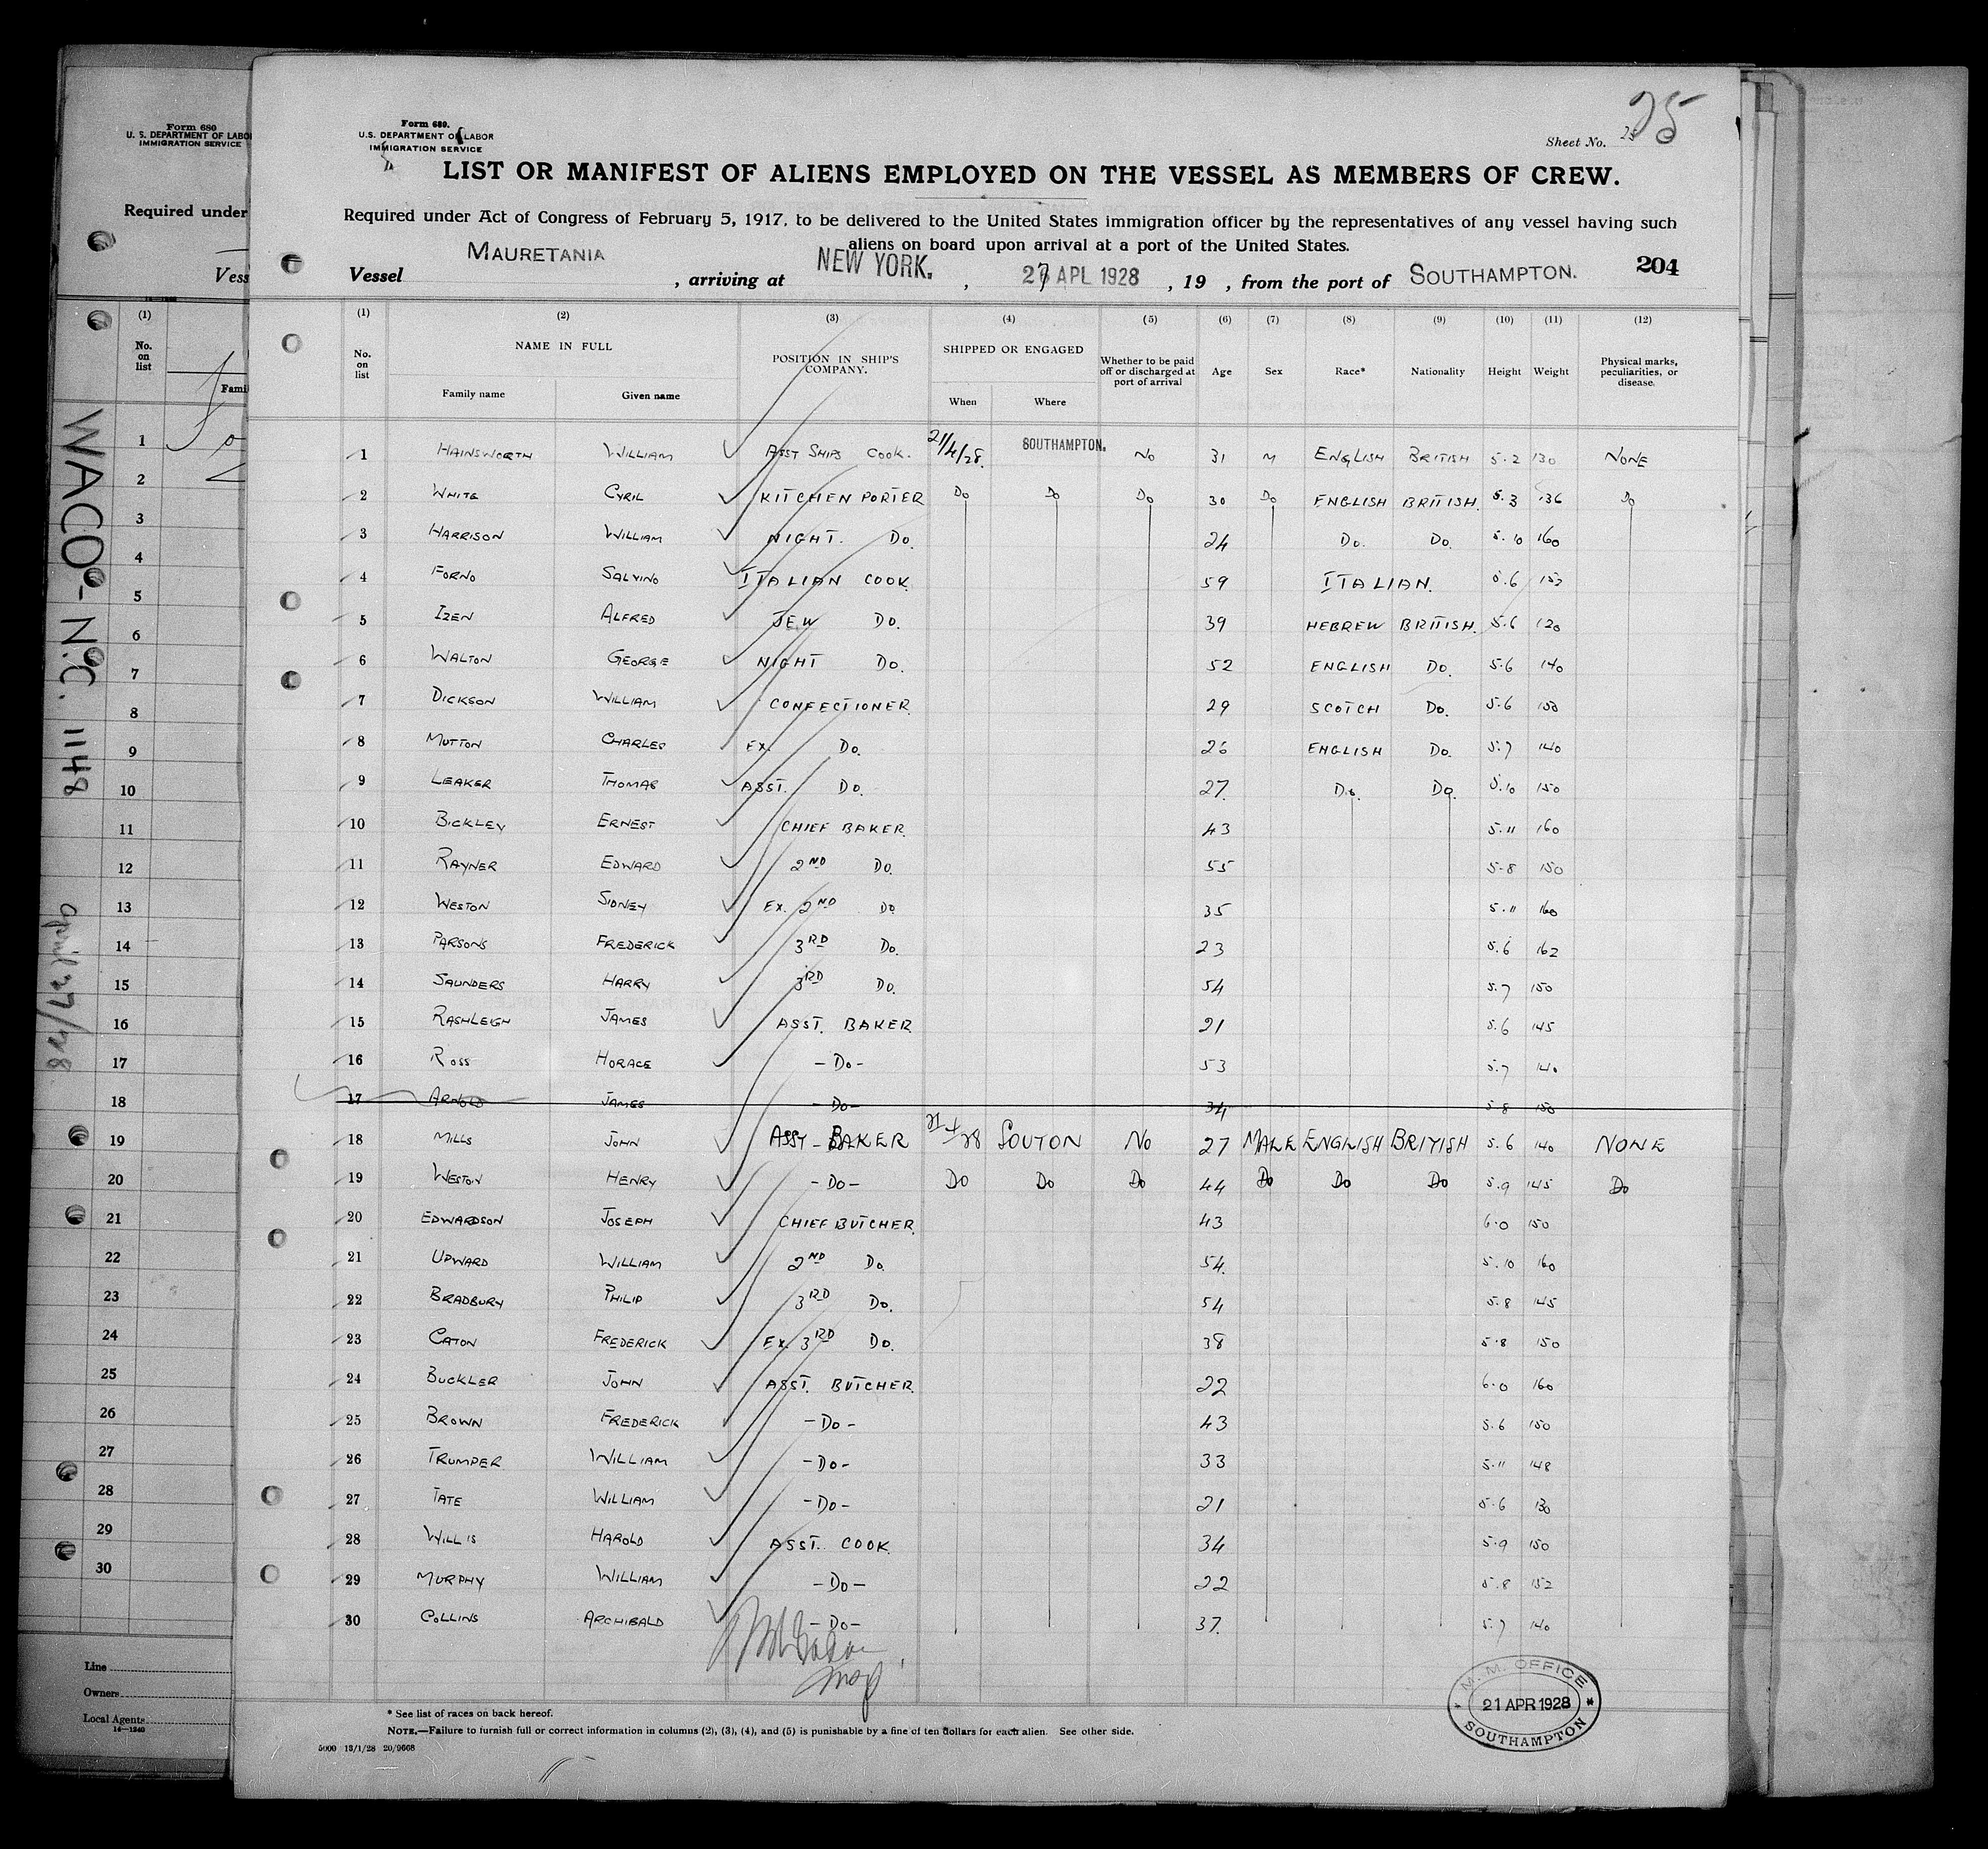 Form 680
U. S. DEPARTMENT OF LABO
IMMIGRATION SERVICE
Required under
Vess
(1)
No.
on
list
Fami
1
2
3
4
5
6
7
8
9
10
11
12
13
14
15
16
17
18
19
20
21
22
23
24
25
26
27
28
29
30
Line
Owners
Local Agents
14—1240
WACO - N.C. 1148
April 27/28
Form 680.
U.S. DEPARTMENT OF LABOR
IMMIGRATION SERVICE
Sheet No. 25
25
LIST OR MANIFEST OF ALIENS EMPLOYED ON THE VESSEL AS MEMBERS OF CREW.
Required under Act of Congress of February 5, 1917, to be delivered to the United States immigration officer by the representatives of any vessel having such
aliens on board upon arrival at a port of the United States.
Vessel MAURETANIA, arriving at NEW YORK., 27 APL 1928, 19 , from the port of SOUTHAMPTON. 204
(1) (2) (3) (4) (5) (6) (7) (8) (9) (10) (11) (12)
No. on list NAME IN FULL Family name Given name POSITION IN SHIP'S COMPANY. SHIPPED OR ENGAGED When Where Whether to be paid off or discharged at port of arrival Age Sex Race* Nationality Height Weight Physical marks, peculiarities, or disease.
1 HAINSWORTH WILLIAM ASST SHIPS COOK. 21/4/28. SOUTHAMPTON. NO 31 M ENGLISH BRITISH 5.2 130 NONE
2 WHITE CYRIL KITCHEN PORTER DO DO DO 30 DO ENGLISH BRITISH. 5.3 136 DO
3 HARRISON WILLIAM NIGHT. DO. 24 DO. DO. 5.10 160
4 FORNO SALVINO ITALIAN COOK 59 ITALIAN. 5.6 153
5 IZEN ALFRED JEW DO. 39 HEBREW BRITISH. 5.6 120
6 WALTON GEORGE NIGHT DO. 52 ENGLISH DO. 5.6 140
7 DICKSON WILLIAM CONFECTIONER. 29 SCOTCH DO. 5.6 150
8 MUTTON CHARLES EX. DO. 26 ENGLISH DO. 5.7 140
9 LEAKER THOMAS ASST. DO. 27. DO. DO. 5.10 150
10 BICKLEY ERNEST CHIEF BAKER. 43 5.11 160
11 RAYNER EDWARD 2ND DO. 55 5.8 150
12 WESTON SIDNEY EX. 2ND DO 35 5.11 160
13 PARSONS FREDERICK 3RD DO. 23 5.6 162
14 SAUNDERS HARRY 3RD DO. 54 5.7 150
15 RASHLEIGH JAMES ASST. BAKER 21 5.6 145
16 ROSS HORACE -DO- 53 5.7 140
17 ARNOLD JAMES -DO- 34 5.8 150
18 MILLS JOHN ASST-BAKER 21/4/28 SOUTON NO 27 MALE ENGLISH BRITISH 5.6 140 NONE
19 WESTON HENRY -DO- DO DO DO 44 DO DO DO 5.9 145 DO
20 EDWARDSON JOSEPH CHIEF BUTCHER. 43 6.0 150
21 UPWARD WILLIAM 2ND DO. 54. 5.10 160
22 BRADBURY PHILIP 3RD DO. 54 5.8 145
23 CATON FREDERICK EX. 3RD DO. 38 5.8 150
24 BUCKLER JOHN ASST. BUTCHER. 22 6.0 160
25 BROWN FREDERICK -DO- 43 5.6 150
26 TRUMPER WILLIAM -DO- 33 5.11 148
27 TATE WILLIAM -DO- 21 5.6 130
28 WILLIS HAROLD ASST. COOK. 34 5.9 150
29 MURPHY WILLIAM -DO- 22 5.8 152
30 COLLINS ARCHIBALD -DO- 37. 5.7 140
M. M. OFFICE
21 APR 1928
SOUTHAMPTON
* See list of races on back hereof.
NOTE.—Failure to furnish full or correct information in columns (2), (3), (4), and (5) is punishable by a fine of ten dollars for each alien. See other side.
5000 13/1/28 20/9668